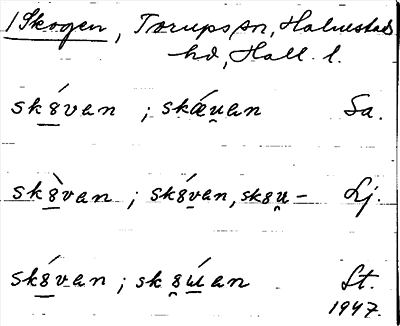 /Skogen, Torups sn, Halmstads
hd, Hall. l.
sk8́van ; skǽu̯an Sa.
sk8̀van ; sk8́van, sk8u̯- Lj.
sk8́van ; sk8̯ẃan St.
1947.